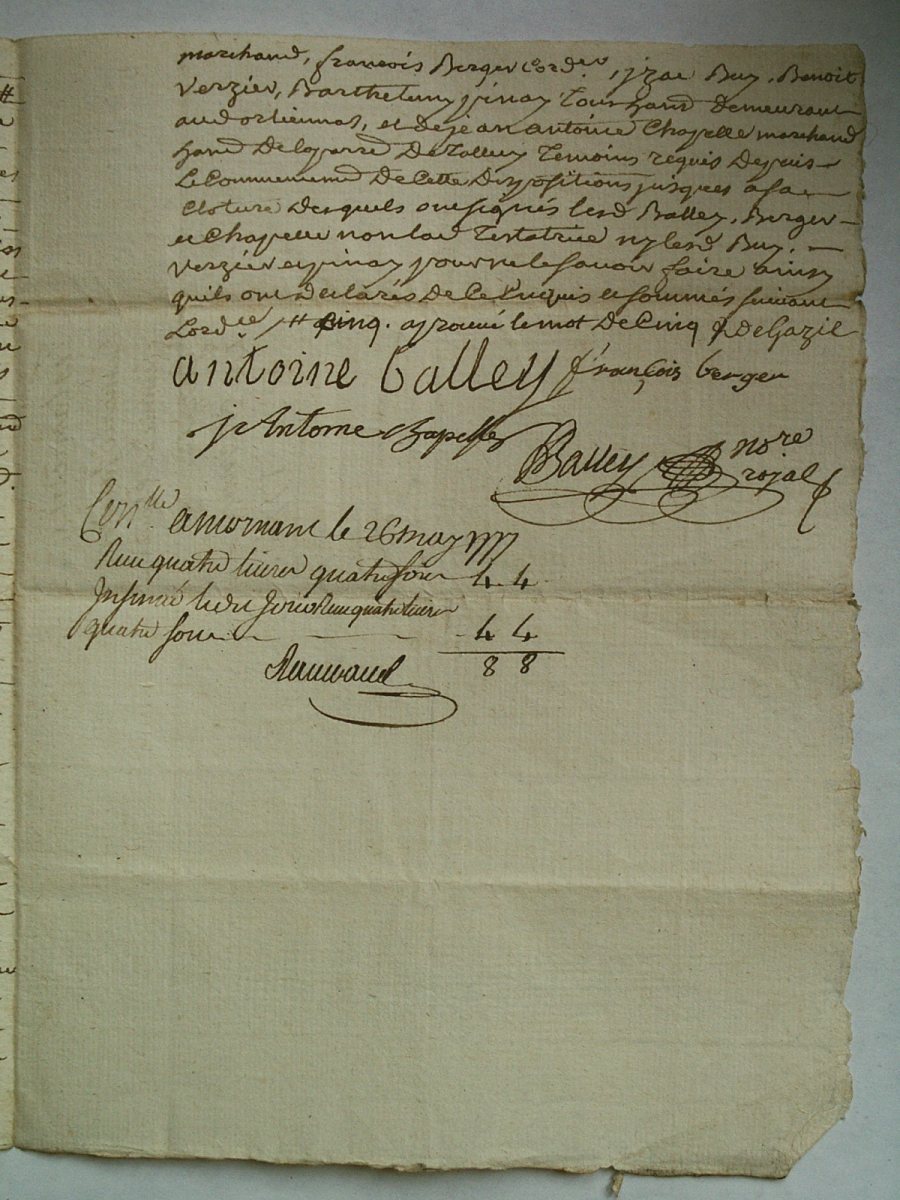 marchand, françois Berger Cord.er, jzac Buy, Benoit
Verzier, Barthelemy pinay Tous hand Demeurant
aud orliennas, et de jean antoine Chapelle marchand
hand De la parre De Talluy Temoins requis Depuis
Le Commencemend De Cette Dispositions jusques a sa
Cloture Desquels ont signés lesd Balley, Berger
et Chapelle non lad Testatrice ny lesd Buy,
Verzier et pinay pour ne le savoir faire ainsy
quils ont declarés De Ce Enquis et sommés suivant
Lord.ce # cinq. aprouvé le mot De Cinq & De
antoine balley françois berger
j Antoine Chapelle
Balley no.re
royal
Con.lle a mornant le 26 may 1777
Reçu quatre livres quatre sous 4 4
Insinué lesdi jour Reçu quatre livres
quatre sous 4 4
8 8